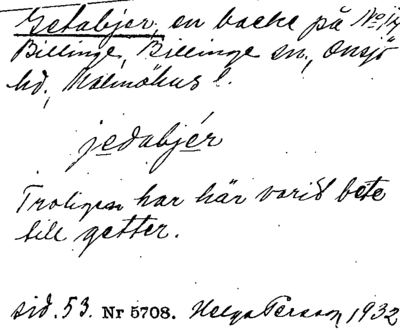 Getabjer, en backe på No 14
Billinge, Billinge sn., Onsjö
hd, Malmöhus l.
jedabjér
Troligen har här varit bete
till getter.
sid. 53. Nr 5708. Helga Persson 1932